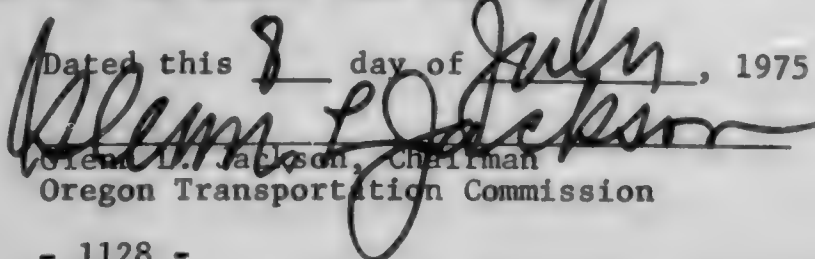 Dated this 8 day of July, 1975
Glenn L. Jackson
Glenn L. Jackson, Chairman
Oregon Transportation Commission
- 1128 -